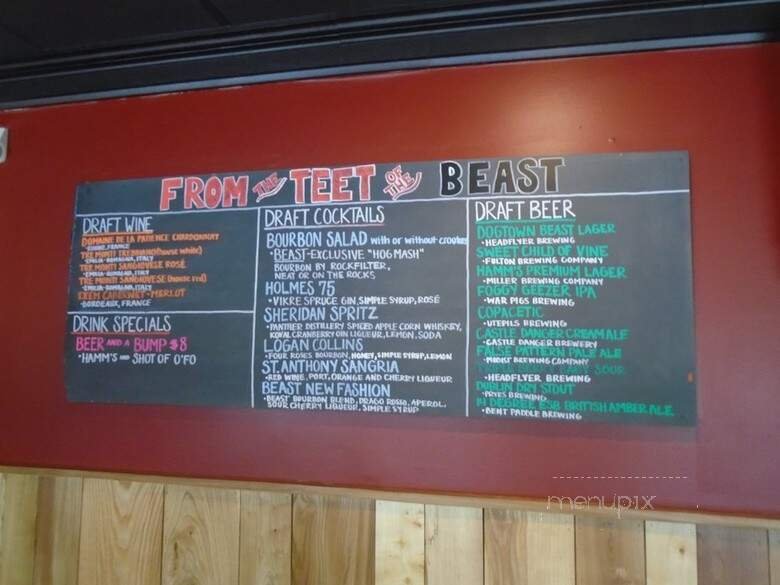 FROM THE TEET OF THE BEAST
DRAFT WINE
DOMAINE DE LA PATIENCE CHARDONNAY
FRANCE
TRE MONTI TREBBIANO (house white)
•EMILIA-ROMAGNA, ITALY
TRE MONTI SANGIOVESE ROSÉ
•EMILIA-ROMAGNA, ITALY
TRE MONTI SANGIOVESE (house red)
•EMILIA-ROMAGNA, ITALY
EXEM CABERNET-MERLOT
•BORDEAUX, FRANCE
DRINK SPECIALS
BEER AND A BUMP $8
•HAMM'S AND SHOT OF O'FO
DRAFT COCKTAILS
BOURBON SALAD with or without croutons
•BEAST-EXCLUSIVE "HOG MASH"
BOURBON BY ROCKFILTER,
NEAT OR ON THE ROCKS
HOLMES 75
•VIKRE SPRUCE GIN, SIMPLE SYRUP, ROSÉ
SHERIDAN SPRITZ
•PANTHER DISTILLERY SPICED APPLE CORN WHISKEY,
KOVAL CRANBERRY GIN LIQUEUR, LEMON, SODA
LOGAN COLLINS
•FOUR ROSES BOURBON, HONEY, SIMPLE SYRUP, LEMON
ST. ANTHONY SANGRIA
•RED WINE, PORT, ORANGE AND CHERRY LIQUEUR
BEAST NEW FASHION
•BEAST BOURBON BLEND, DRAGO ROSSO, APEROL,
SOUR CHERRY LIQUEUR, SIMPLE SYRUP
DRAFT BEER
DOGTOWN BEAST LAGER
•HEADFLYER BREWING
SWEET CHILD OF VINE
•FULTON BREWING COMPANY
HAMM'S PREMIUM LAGER
•MILLER BREWING COMPANY
FOGGY GEEZER IPA
•WAR PIGS BREWING
COPACETIC
•UTEPILS BREWING
CASTLE DANGER CREAM ALE
•CASTLE DANGER BREWERY
FALSE PATTERN PALE ALE
•MODIST BREWING COMPANY
SOUR
•HEADFLYER BREWING
DUBLIN DRY STOUT
•PRYES BREWING
14 DEGREE ESB BRITISH AMBER ALE
•BENT PADDLE BREWING
menupix